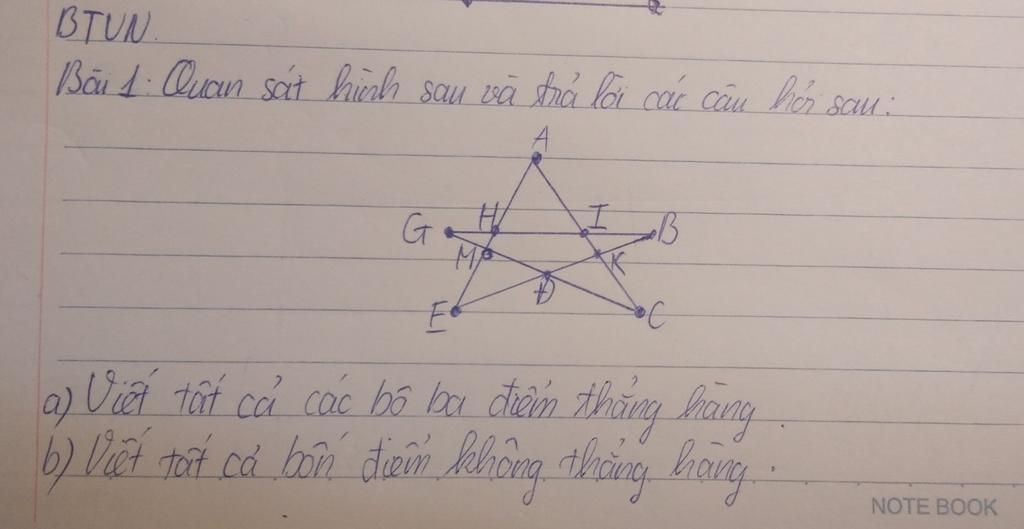 BTVN.
Bài 1: Quan sát hình sau và trả lời các câu hỏi sau:
A
G H I B
M K
Đ
E C
a) Viết tất cả các bộ ba điểm thẳng hàng.
b) Viết tất cả bốn điểm không thẳng hàng.
NOTE BOOK